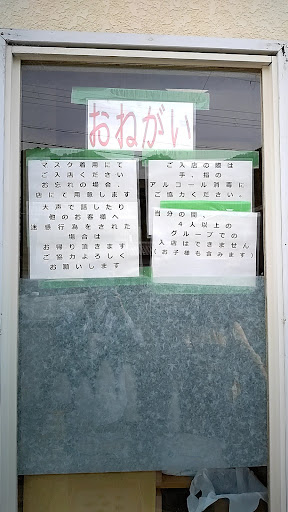 おねがい
マスク着用にて
ご入店ください
お忘れの場合、
店にて用意します
大声で話したり
他のお客様へ
迷惑行為をされた
場合は
お帰り頂きます
ご協力よろしく
お願いします
ご入店の際は
手、指の
アルコール消毒に
ご協力ください。
当分の間、
4人以上の
グループでの
入店はできません
(お子様も含みます)